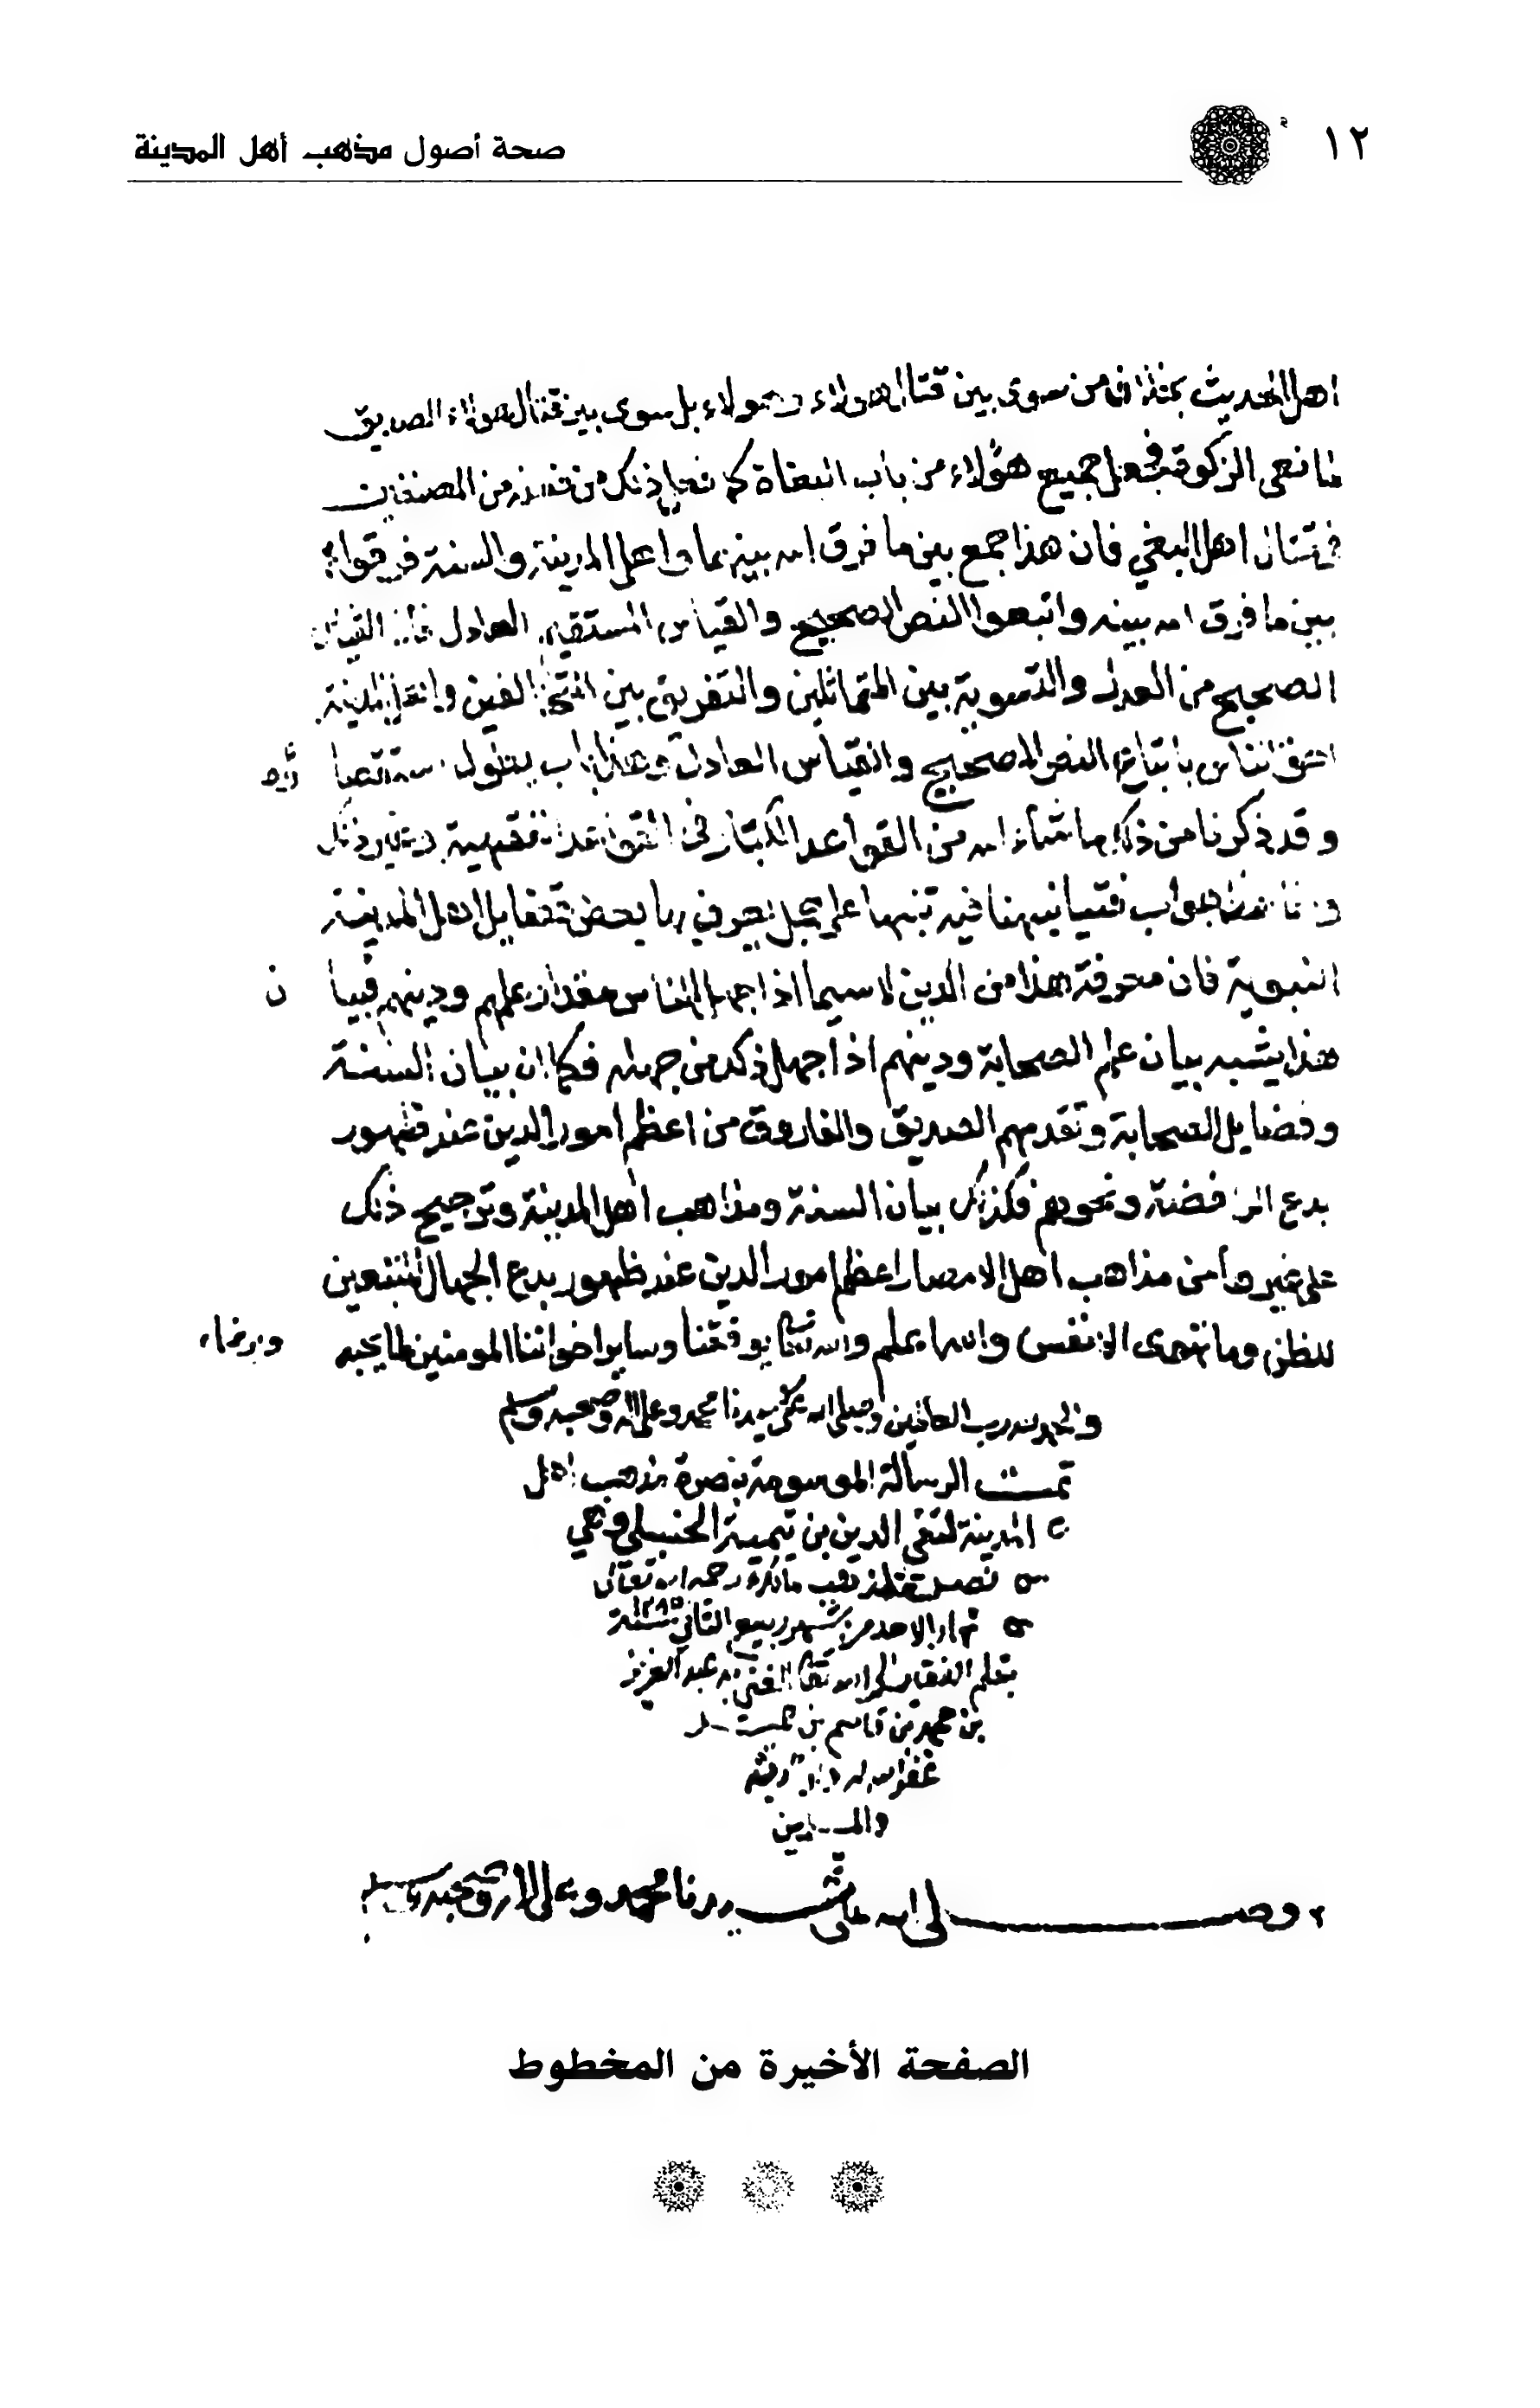 ١٢ صحة أصول مذهب أهل المدينة
اهل الحديث بخلاف من سوى بين قتال هولاء وهولاء بل سوى بين قتال هولاء الصديق
لمانعي الزكوة فجعل جميع هؤلاء من باب البغاة كما فعل ذلك من فعله من المصنفين
في قتال اهل البغي فان هذا جمع بين ما فرق الله بينهما واهل المدينة والسنة فرقوا
بين ما فرق الله بينه واتبعوا النص الصحيح والقياس المستقيم العادل فان القياس
الصحيح من العدل والتسوية بين المتماثلين والتفريق بين المتخالفين واهل المدينة
احق الناس باتباع النص الصحيح والقياس العادل وهذا باب يطول استقصاؤه
وقد ذكرنا من ذلك ما شاء الله من القواعد الكبار في القواعد الفقهية وغير ذلك
جواب فتيا نبهنا فيه تنبيها على جمل يعرف بها بعض فضايل اهل المدينة
النبوية فان معرفة هذا من الدين لا سيما اذا جهل الناس مقدار علمهم ودينهم فبيان
هذا يشبه بيان علم الصحابة ودينهم اذا جهل ذلك من جهله فكما ان بيان السنة
وفضايل الصحابة وتقديمهم الصديق والفاروق من اعظم امور الدين عند ظهور
بدع الرافضة ونحوهم فكذلك بيان السنة ومذاهب اهل المدينة وترجيح ذلك
على غيرها من مذاهب اهل الامصار اعظم امور الدين عند ظهور بدع الجهال المتبعين
للظن وما تهوى الانفس والله اعلم والله تعالى يوفقنا وساير اخواننا المومنين لما يحبه ويرضاه
والحمد لله رب العالمين وصلى الله على سيدنا محمد وعلى اله وصحبه وسلم
تمت الرسالة الموسومة بنصرة مذهب اهل
المدينة لتقي الدين بن تيمية الحنبلي وهي
رحمه الله تعالى
نهار الاحد من شهر ربيع الثاني سنة ١٢٨٥
بقلم الفقير الى الله تعالى الغني به عبد العزيز
بن حمد بن قاسم بن
غفر الله له
والمسلمين
وصلى الله على سيدنا محمد وعلى اله وصحبه وسلم
الصفحة الأخيرة من المخطوط